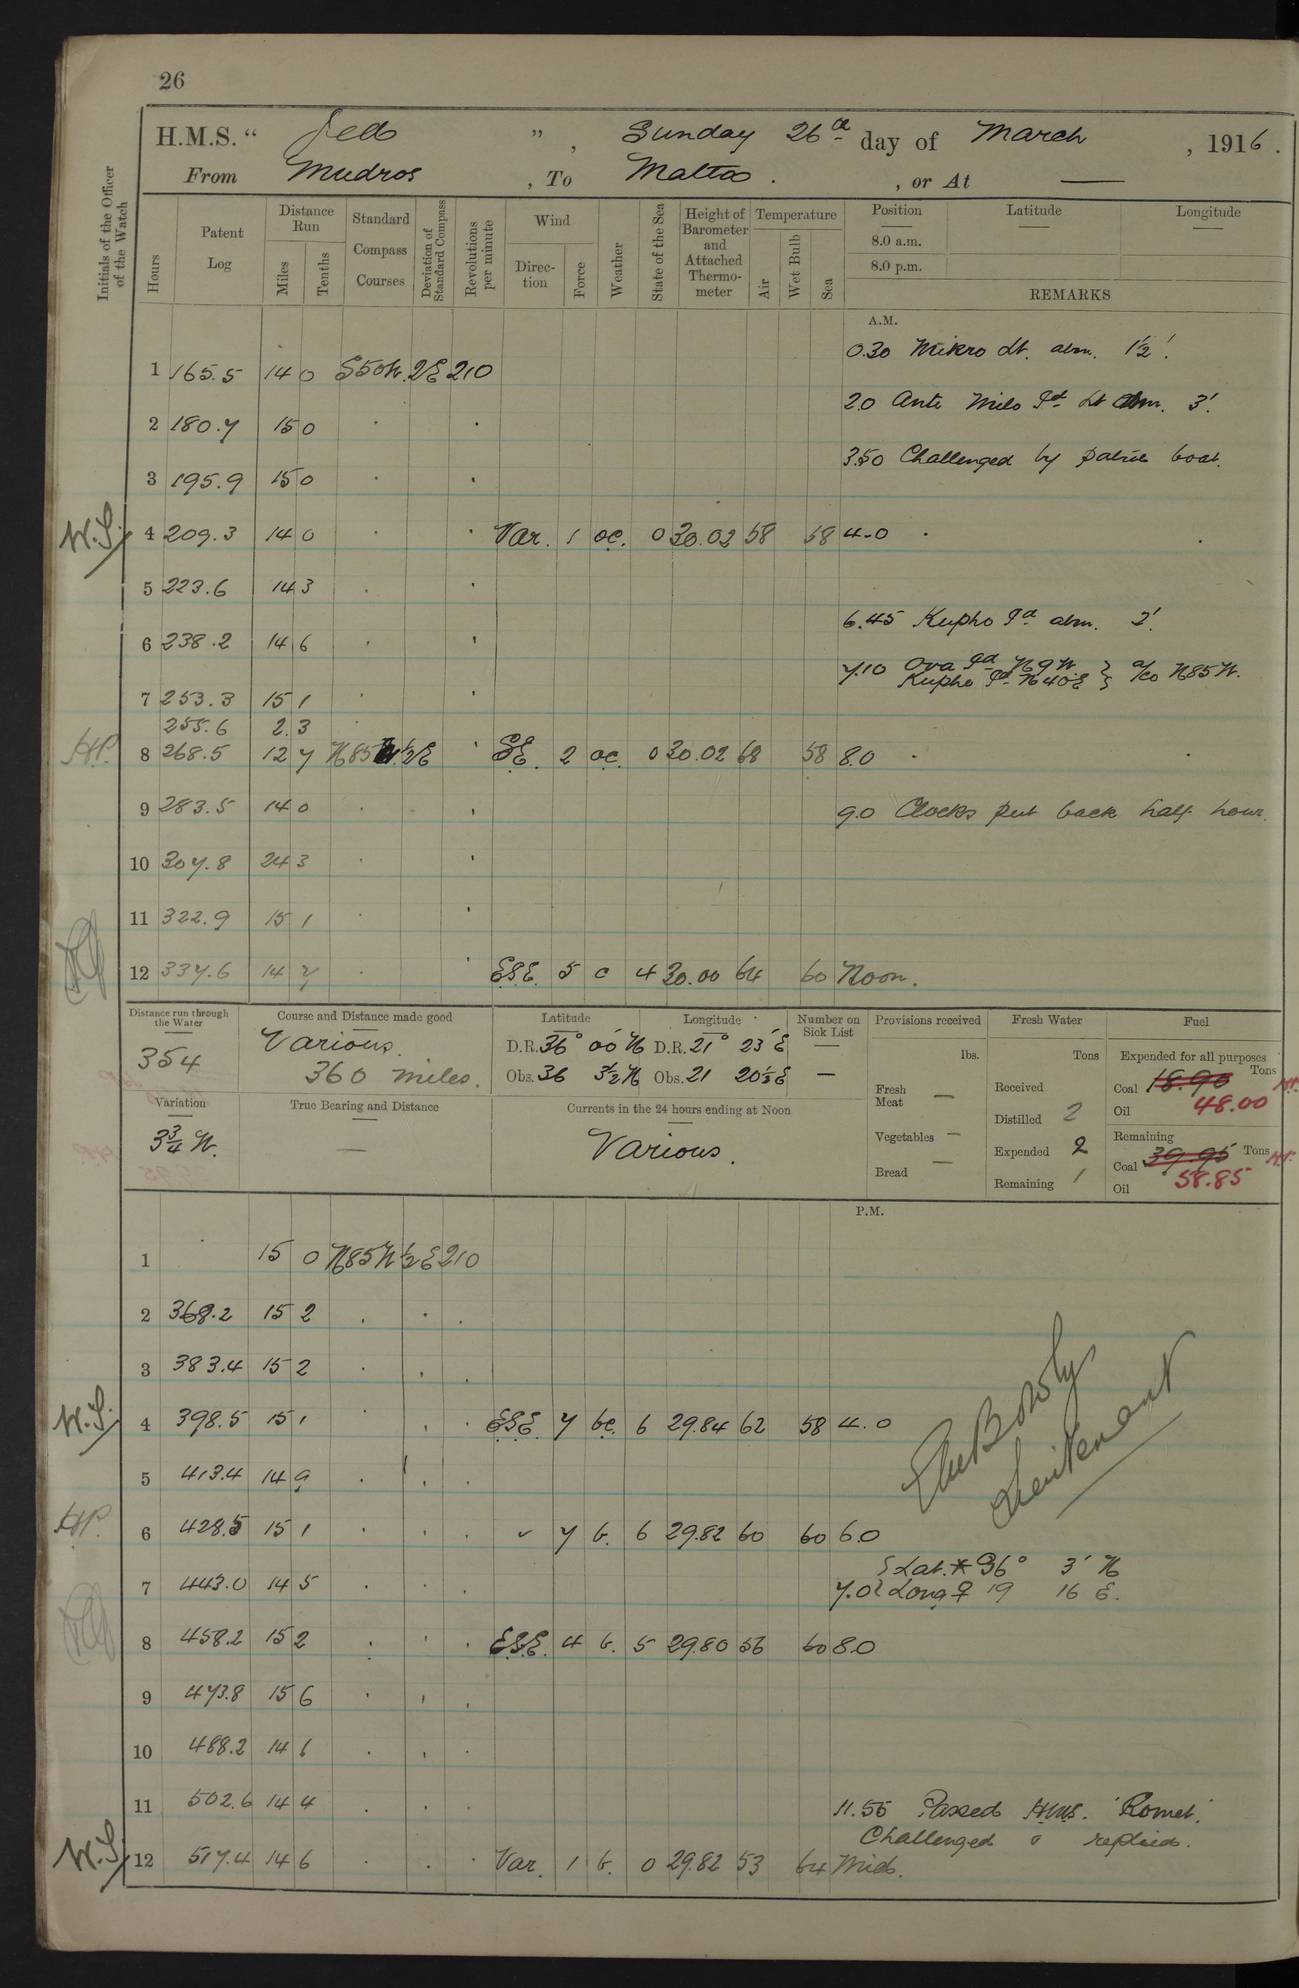 26
H.M.S. “ Jed ” , Sunday 26th day of March , 1916 .
From Mudros , To Malta . , or At —
Initials of the Officer of the Watch
Hours Patent Log Distance Run Miles Tenths Standard Compass Courses Deviation of Standard Compass Revolutions per minute Wind Direction Force Weather State of the Sea Height of Barometer and Attached Thermometer Temperature Air Wet Bulb Sea Position Latitude Longitude
8.0 a.m.
8.0 p.m.
REMARKS
A.M.
0.30 Mikro Lt. abm. 1½'.
1 165.5 14 0 S50W. 2E 210
2.0 Anti Milo Pt Lt abm. 3'.
2 180.7 15 0 . .
3.50 Challenged by patrol boat.
3 195.9 15 0 . .
W.S. 4 209.3 14 0 . . Var. 1 oc. 0 30.02 58 58 4.0 .
5 223.6 14 3 . .
6.45 Kupho Pt abm. 2'.
6 238.2 14 6 . .
7.10 Ova Pt N9W } a/co N85W.
Kupho Pt N40E }
7 253.3 15 1 . .
255.6 2.3
H.P. 8 268.5 12 7 N85W. ½E . SE. 2 oc. 0 30.02 68 58 8.0 .
9 283.5 14 0 . .
9.0 Clocks put back half hour.
10 307.8 24 3 . .
11 322.9 15 1 . .
12 337.6 14 7 . . ESE. 5 c 4 30.00 64 60 Noon.
Distance run through the Water
354
Course and Distance made good
Various.
360 miles.
Latitude
D.R. 36° 00' N
Obs. 36 3½ N
Longitude
D.R. 21° 23' E
Obs. 21 20½ E
Number on Sick List
—
Provisions received
lbs.
Fresh Meat —
Vegetables —
Bread —
Fresh Water
Tons
Received
Distilled 2
Expended 2
Remaining 1
Fuel
Expended for all purposes
Tons
Coal 18.90 H.P.
Oil 48.00
Remaining
Tons
Coal 39.95 H.P.
Oil 58.85
Variation
3¾ W.
True Bearing and Distance
—
Currents in the 24 hours ending at Noon
Various.
P.M.
1 . 15 0 N85W ½E 210
2 368.2 15 2 . . .
3 383.4 15 2 . . .
W.S. 4 398.5 15 1 . . . ESE. 7 bc. 6 29.84 62 58 4.0
Lieutenant
5 413.4 14 9 . . .
H.P. 6 428.5 15 1 . . . ✓ 7 b. 6 29.82 60 60 6.0
7.0 { Lat. * 36° 3' N
{ Long ♀ 19 16 E.
7 443.0 14 5 . . .
8 458.2 15 2 . . . ESE. 4 b. 5 29.80 56 60 8.0
9 473.8 15 6 . . .
10 488.2 14 6 . . .
11 502.6 14 4 . . .
11.55 Passed H.M.S. 'Comet'.
Challenged & replied.
W.S. 12 517.4 14 6 . . . Var. 1 b. 0 29.82 53 64 Mid.